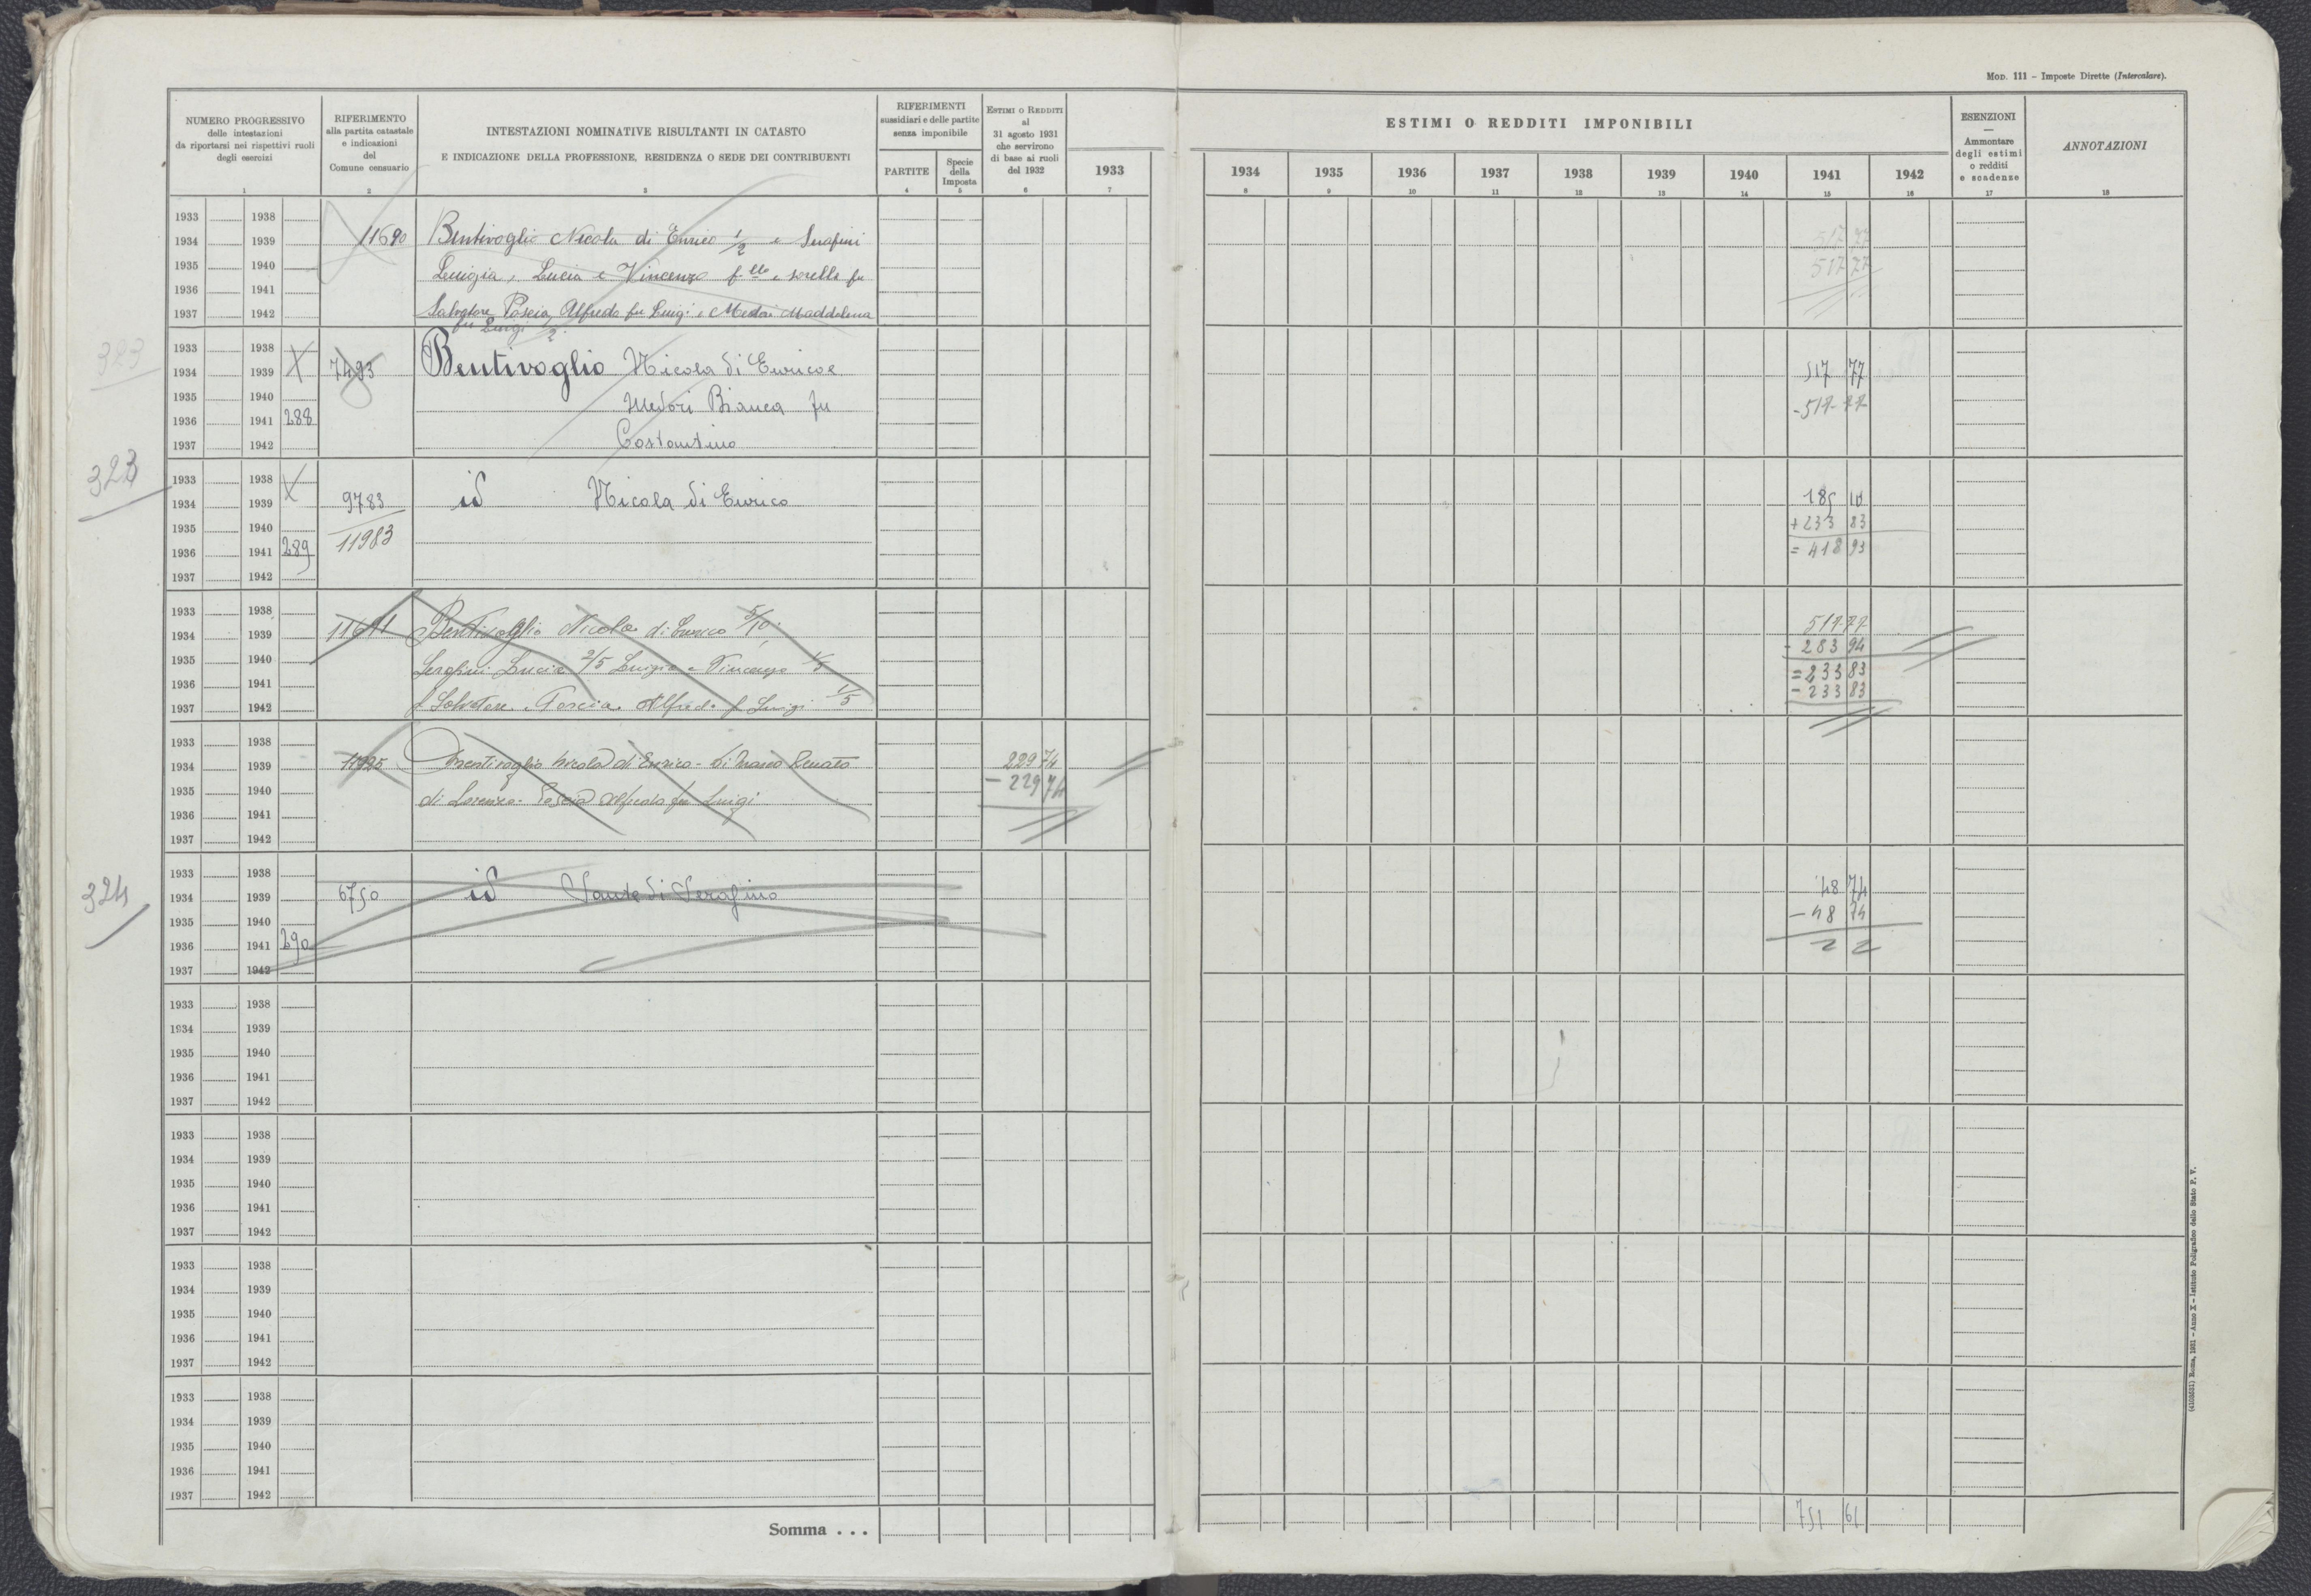 Mod. 111 – Imposte Dirette (Intercalare).
NUMERO PROGRESSIVO
delle intestazioni
da riportarsi nei rispettivi ruoli
degli esercizi
1
RIFERIMENTO
alla partita catastale
e indicazioni
del
Comune censuario
2
INTESTAZIONI NOMINATIVE RISULTANTI IN CATASTO
E INDICAZIONE DELLA PROFESSIONE, RESIDENZA O SEDE DEI CONTRIBUENTI
3
RIFERIMENTI
sussidiari e delle partite
senza imponibile
PARTITE
4
Specie
della
Imposta
5
Estimi o Redditi
al
31 agosto 1931
che servirono
di base ai ruoli
del 1932
6
1933
7
ESTIMI O REDDITI IMPONIBILI
1934 1935 1936 1937 1938 1939 1940 1941 1942
8 9 10 11 12 13 14 15 16
ESENZIONI
—
Ammontare
degli estimi
o redditi
e scadenze
17
ANNOTAZIONI
18
1933 1938
1934 1939 11690 Bentivoglio Nicola di Enrico 1/2 e Serafini 517 77
1935 1940 Luigia, Lucia e Vincenzo f.lli e sorelle fu 517 77
1936 1941
1937 1942 Salvatore Poscia Alfredo fu Luigi e Medori Maddalena
fu Luigi 1/2
323
1933 1938
1934 1939 7493 Bentivoglio Nicola di Enrico e 517 77
1935 1940 Medori Bianca fu -517 77
1936 1941 288
1937 1942 Costantino
323
1933 1938
1934 1939 9783 id Nicola di Enrico 185 10
1935 1940 11983 +233 83
1936 1941 289 =418 93
1937 1942
1933 1938
1934 1939 11691 Bentivoglio Nicola di Enrico 5/10 517 77
1935 1940 Serafini Lucia 2/5 Luigia e Vincenzo 1/5 - 283 94
1936 1941 =233 83
1937 1942 f Salvatore Poscia Alfredo f Luigi 1/5 -233 83
1933 1938
1934 1939 Bentivoglio Nicola di Enrico - Di Renato 229 74
1935 1940 di Lorenzo - Poscia Alfredo fu Luigi - 229 74
1936 1941
1937 1942
324
1933 1938
1934 1939 6750 id Sante di Serafino 48 74
1935 1940 -48 74
1936 1941 290
1937 1942
1933 1938
1934 1939
1935 1940
1936 1941
1937 1942
1933 1938
1934 1939
1935 1940
1936 1941
1937 1942
1933 1938
1934 1939
1935 1940
1936 1941
1937 1942
1933 1938
1934 1939
1935 1940
1936 1941
1937 1942
Somma . . . 751 61
Roma, 1931 – Anno X – Istituto Poligrafico dello Stato P. V.